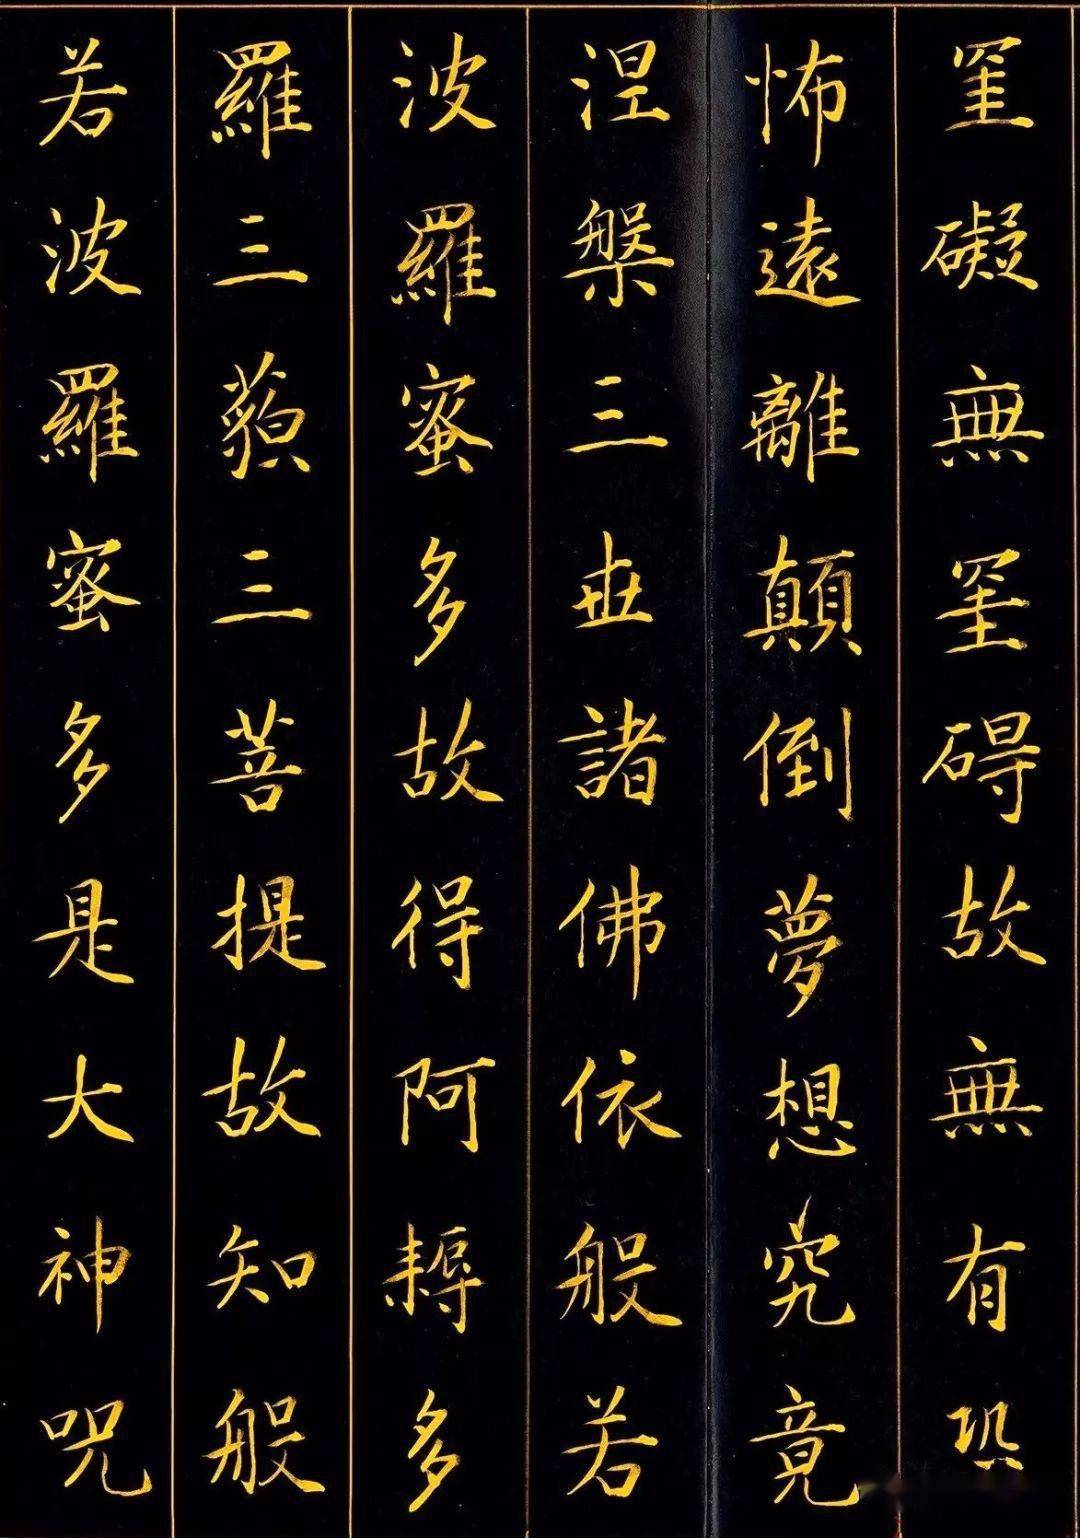 罣礙無罣碍故無有恐
怖遠離顛倒夢想究竟
涅槃三世諸佛依般若
波羅蜜多故得阿耨多
羅三藐三菩提故知般
若波羅蜜多是大神咒